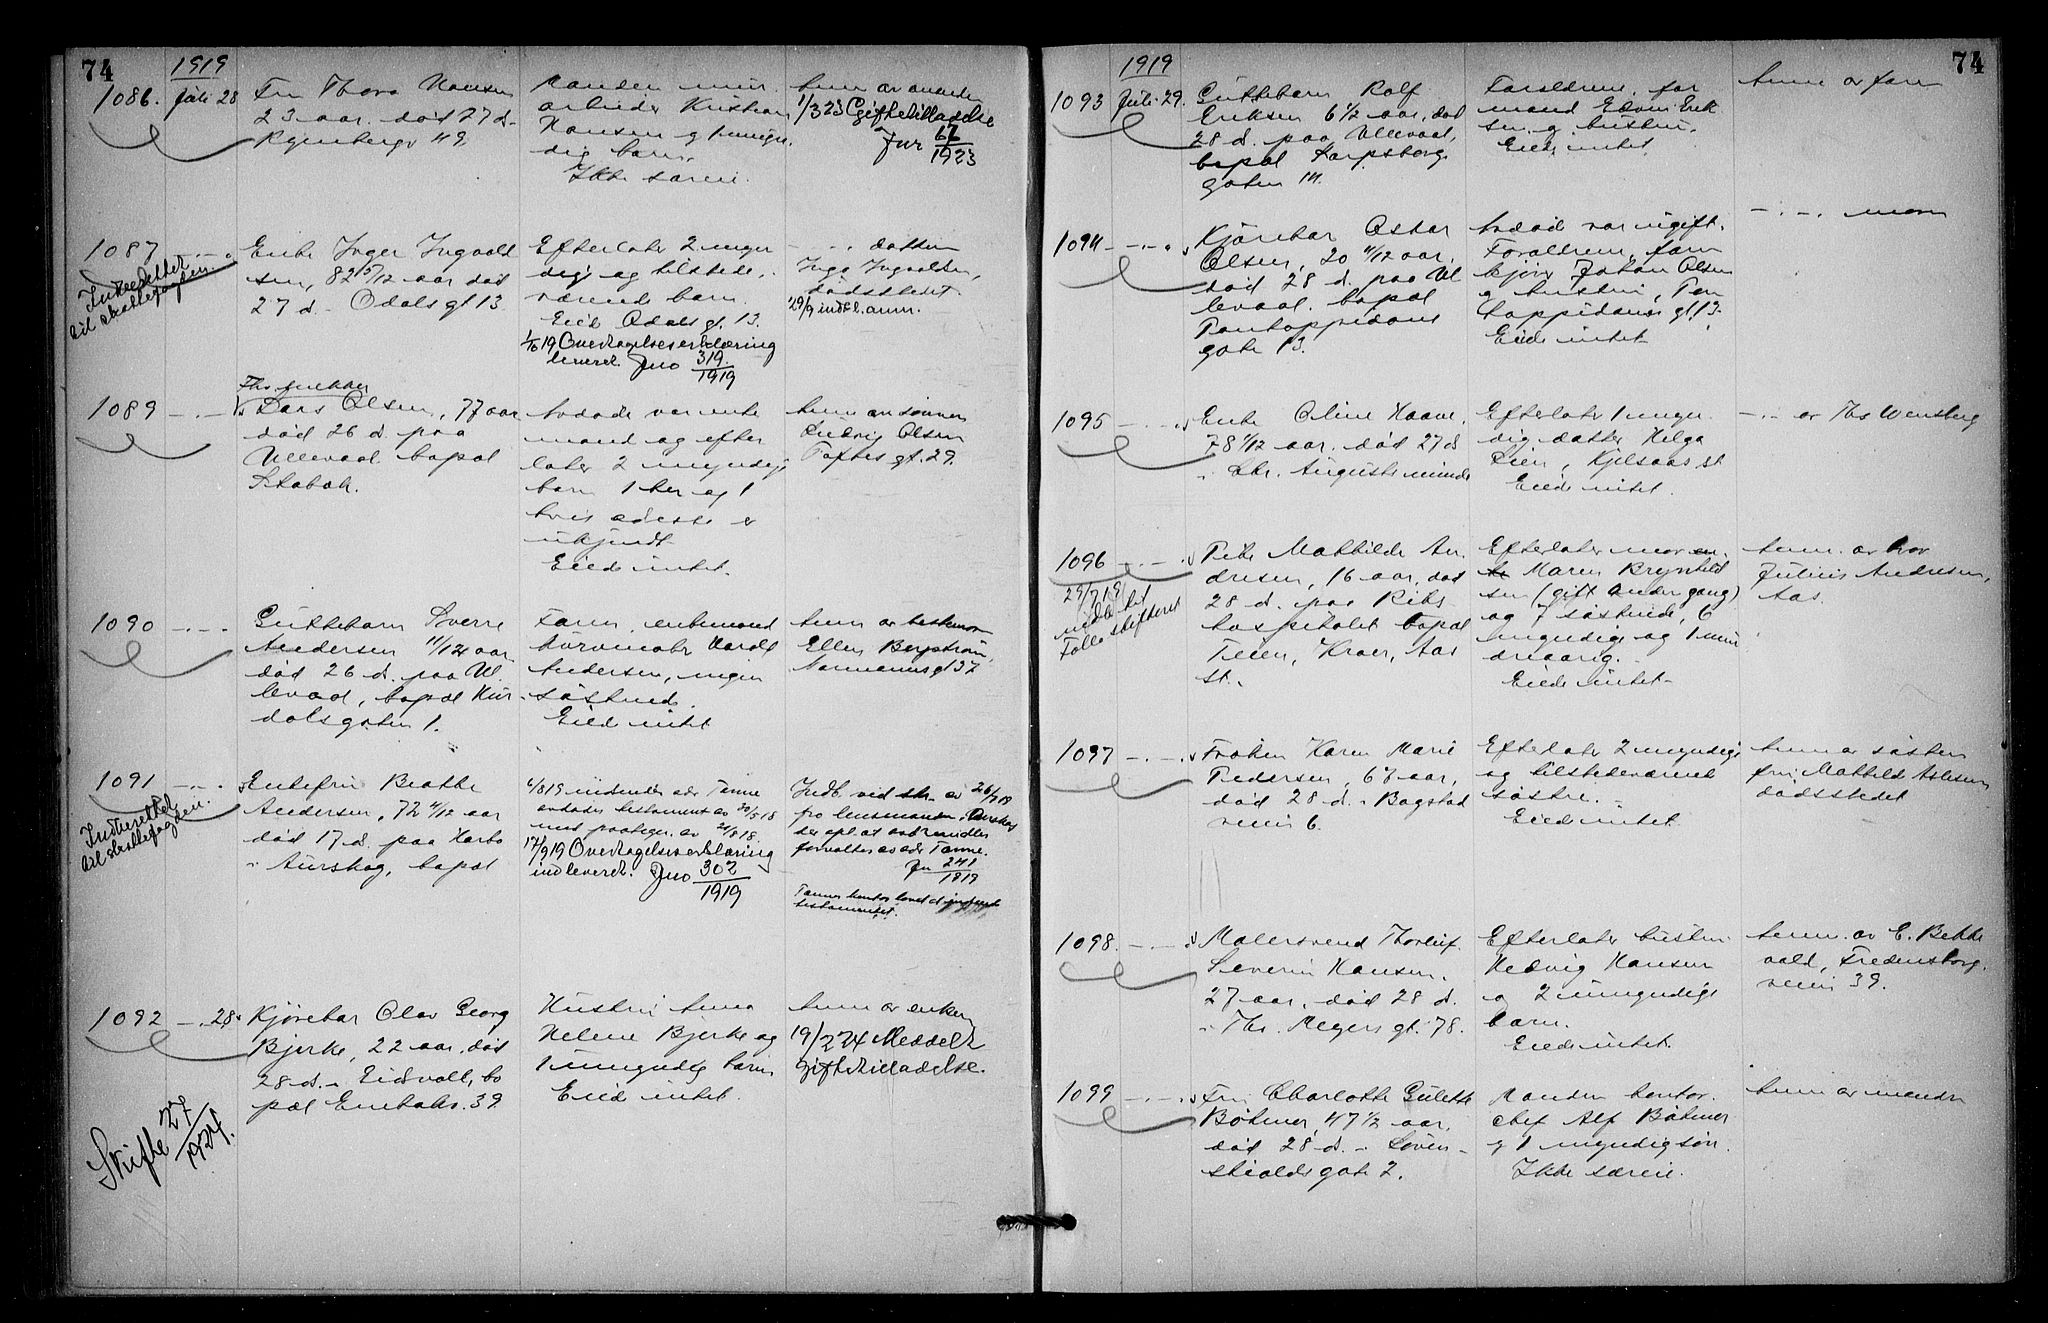 74
1919
1086. Juli 28
Fru Thora Hansen
23 aar. död 27 d.
Ryenbergv 49.
Manden mur.
arbeider Kristian
Hansen og 1 umyn.
dig barn.
Ikke særeie.
Anm. av manden
1/3 23 Giftetilladelse
Jnr 67/1923
1087 -.-.
Indberettet
til skattefogden
Enke Inger Ingvald
sen, 82 5/12 aar död
27 d. Odals gt 13
Efterlater 2 myn
dige og tilstede-
værende barn.
Eied Odals gt. 13.
1/10 19 Overtagelseserklæring
leveret. Jno 319/1919
-.- datter
Inga Ingvaldsen,
dødsstedet.
29/9 indk. anm.
1089 -.-
Ths. enkem.
Lars Olsen, 77 aar
död 26 d. paa
Ullevaal bopæl
Stabæk.
Avdöde var enke
mand og efter
later 2 myndige
barn 1 her og 1
hvis adresse er
ukjendt
Eiede intet.
Anm av sönnen
Ludvig Olsen
Toftes gt. 29.
1090 -.-.
Guttebarn Sverre
Andersen 11/12 aar
död 26 d. paa Ul
levaal, bopæl Hur
dalsgaten 1.
Faren, enkemand
Harald
Andersen, ingen
söskende.
Eied intet
Anm av bestemor
Ellen Bergström,
Normannsgt 37
1091 -.-.
Indberettet
til skattefogden.
Enkefru Beathe
Andersen, 72 4/12 aar
död 17 d. paa
Aurskog, bopæl
6/8 19 indsendte adv Tanne
avdødes testament av 20/5 18
med paategn. av 21/8 18.
17/9 19 Overtagelseserklæring
indleveret. Jno 302/1919
Indb. ved skr. av 26/7 19
fra lensmanden i Aurskog
der opl. at
forvaltes av adv Tanne.
Jn 241/1919
Tannes kontor lovet at indsende
testamentet.
1092 -.28.
Kjörekar Olav Georg
Bjerke, 22 aar, död
28 d. - Eidsvoll, bo
pæl Enebakv. 39.
Hustru Anna
Helene Bjerke og
1 umyndig barn
Eied intet.
Anm av enken
19/2 24 Meddelt
giftetilladelse.
Skifte 27/1924.
74
1919
1093 Juli 29.
Guttebarn Rolf
Eriksen 6 1/2 aar, död
28 d. paa Ullevaal,
bopæl Sarpsborg
gaten 14.
Foreldrene, for
mand Edvin Erik
sen og hustru.
Eied intet.
Anm av faren
1094 -.-.
Kjörekar Oskar
Olsen, 20 11/12 aar.
död 28 d. paa Ul
levaal. bopæl
Pontoppidans
gate 13.
Avdöd var ugift.
Foreldrene, for
kjörer Johan Olsen
og hustru, Pon
toppidans gt. 13.
Eiede intet
-.-. moren
1095 -.-.
Enke Oline Haave,
78 1/12 aar. död 27 d
- Chr. Augusts minde
Efterlater 1 myn
dig datter Helga
Lien, Kjelsaas st.
Eied intet.
-.- av Ths Wensberg
1096 -.-.
29/7 19
indb. til
Follo skifteret
Pike Mathilde An.
dresen, 16 aar, död
28 d. paa Riks
hospitalet bopæl
Teien, Kroer, Aas
st.
Efterlater mor en.
ke Maren Brynhild
sen (gift anden gang)
og 7 söskende, 6
myndige og 1 min
dreaarig.
Eiede intet
Anm. av bror
Julius Andresen,
Aas.
1097 -.-.
Fröken Karen Marie
Pedersen, 67 aar,
död 28 d. - Bogstad
veien 6.
Efterlater 2 myndige
og tilstedeværend
söstre.
Eiede intet.
Anm av söster
fru Mathilde Aslesen
dödsstedet
1098. -.-.
Malersvend Thorleif
Severin Hansen.
27 aar, död 28 d.
- Thv. Meyers gt. 78.
Efterlater hustru
Hedvig Hansen
og 2 umyndige
barn.
Eiede intet.
Anm. av E. Bekke
vold, Fredensborg.
veien 39.
1099 -.-.
Fru Charlotte Gulette
Böhmer, 47 1/2 aar,
död 28 d. - Löven-
skiolds gate 2.
Manden kontor.
chef Alf Böhmer
og 1 myndig sön.
Ikke særeie.
Anm av manden